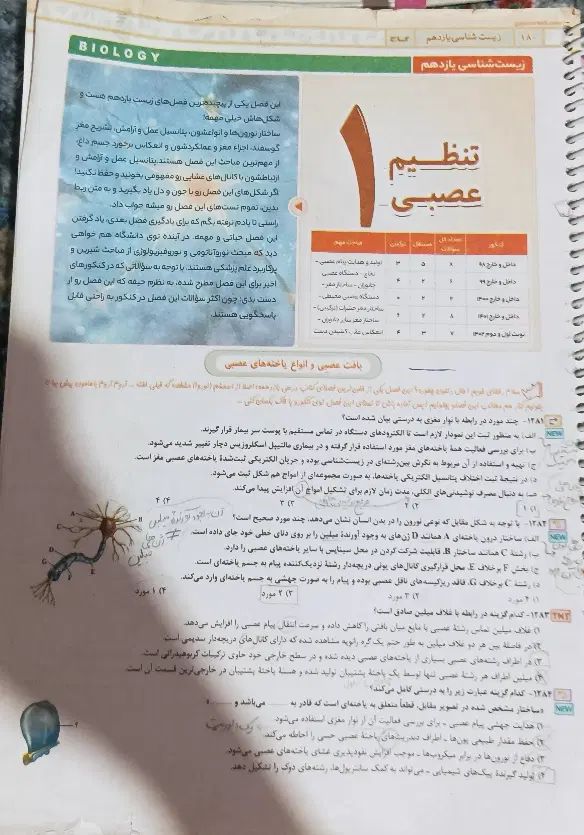 ۱۸۰ زیست شناسی یازدهم گاج
BIOLOGY
زیست‌شناسی یازدهم
۱
تنظیم
عصبی
این فصل یکی از پیچیده‌ترین فصل‌های زیست یازدهم هست و
شکل‌هاش خیلی مهمه!
ساختار نورون‌ها و انواعشون، پتانسیل عمل و آرامش، تشریح مغز
گوسفند، اجزاء مغز و عملکردشون و انعکاس برخورد جسم داغ،
از مهم‌ترین مباحث این فصل هستند. پتانسیل عمل و آرامش و
ارتباطشون با کانال‌های غشایی رو مفهومی بخونید و حفظ نکنید!
اگر شکل‌های این فصل رو با جون و دل یاد بگیرید و به متن ربط
بدین، تموم تست‌های این فصل رو میشه جواب داد.
راستی تا یادم نرفته بگم که برای یادگیری فصل بعدی، یاد گرفتن
این فصل حیاتی و مهمه. در آینده توی دانشگاه هم خواهی
دید که مبحث نوروآناتومی و نوروفیزیولوژی از مباحث شیرین و
پرکاربرد علم پزشکی هستند. با توجه به سؤالاتی که در کنکورهای
اخیر برای این فصل مطرح شده، به نظرم حیفه که این فصل رو از
دست بدی؛ چون اکثر سؤالات این فصل در کنکور به راحتی قابل
پاسخگویی هستند.
کنکور تعداد کل سؤالات مستقل ترکیبی مباحث مهم
داخل و خارج ۹۸ ۸ ۵ ۳ تولید و هدایت پیام عصبی -
داخل و خارج ۹۹ ۶ ۲ ۴
داخل و خارج ۱۴۰۰ ۲ ۲ ۰ دستگاه عصبی محیطی -
داخل و خارج ۱۴۰۱ ۸ ۲ ۶
نوبت اول و دوم ۱۴۰۲ ۷ ۳ ۴
بافت عصبی و انواع یاخته‌های عصبی
۱۲۸۱- چند مورد در رابطه با نوار مغزی به درستی بیان شده است؟
NEW
الف) به منظور ثبت این نمودار لازم است تا الکترودهای دستگاه در تماس مستقیم با پوست سر بیمار قرار گیرند.
ب) برای بررسی فعالیت همهٔ یاخته‌های مغز مورد استفاده قرار گرفته و در بیماری مالتیپل اسکلروزیس دچار تغییر شدید می‌شود.
ج) تهیه و استفاده از آن مربوط به نگرش بین‌رشته‌ای در زیست‌شناسی بوده و جریان الکتریکی ثبت‌شدهٔ یاخته‌های عصبی مغز است.
د) در نتیجهٔ ثبت اختلاف پتانسیل الکتریکی یاخته‌ها، به صورت مجموعه‌ای از امواج هم شکل ثبت می‌شود.
ه) به دنبال مصرف نوشیدنی‌های الکلی، مدت زمان لازم برای تشکیل امواج آن افزایش پیدا می‌کند.
۱) ۱ ۲) ۲ ۳) ۳ ۴) ۴
۱۲۸۲- با توجه به شکل مقابل که نوعی نورون را در بدن انسان نشان می‌دهد، چند مورد صحیح است؟
NEW
الف) ساختار درون یاخته‌ای A همانند D ژن‌های به وجود آورندهٔ میلین را بر روی دنای خطی خود جای داده است.
ب) رشتهٔ C همانند ساختار B، قابلیت شرکت کردن در محل سیناپس با سایر یاخته‌های عصبی را دارد.
ج) بخش F برخلاف E، محل قرارگیری کانال‌های یونی دریچه‌دار رشتهٔ نزدیک‌کننده پیام به جسم یاخته‌ای است.
د) رشتهٔ C برخلاف G، فاقد ریزکیسه‌های ناقل عصبی بوده و پیام را به صورت جهشی به جسم یاخته‌ای وارد می‌کند.
۱) ۴ مورد ۲) ۳ مورد ۳) ۲ مورد ۴) ۱ مورد
۱۲۸۳- کدام گزینه در رابطه با غلاف میلین صادق است؟
TNT
۱) غلاف میلین تماس رشتهٔ عصبی با مایع میان بافتی را کاهش داده و سرعت انتقال پیام عصبی را افزایش می‌دهد.
۲) در فاصلهٔ بین هر دو غلاف میلین به طور حتم یک گره رانویه مشاهده شده که دارای کانال‌های دریچه‌دار سدیمی است.
۳) در اطراف رشته‌های عصبی بسیاری از یاخته‌های عصبی دیده شده و در سطح خارجی خود حاوی ترکیبات کربوهیدراتی است.
۴) میلین اطراف هر رشتهٔ عصبی تنها توسط یک یاختهٔ پشتیبان تولید شده و هستهٔ یاختهٔ پشتیبان در خارجی‌ترین قسمت آن است.
۱۲۸۴- کدام گزینه عبارت زیر را به درستی کامل می‌کند؟
NEW
«ساختار مشخص شده در تصویر مقابل، قطعاً متعلق به یاخته‌ای است که قادر به ........ می‌باشد و ........»
۱) هدایت جهشی پیام عصبی - برای بررسی فعالیت آن از نوار مغزی استفاده می‌شود.
۲) حفظ مقدار طبیعی یون‌ها - اطراف دندریت‌های یاخته‌های عصبی حسی را احاطه می‌کند.
۳) دفاع از نورون‌ها در برابر میکروب‌ها - موجب افزایش نفوذپذیری غشای یاخته‌های عصبی می‌شود.
۴) تولید گیرندهٔ پیک‌های شیمیایی - می‌تواند به کمک سانتریول‌ها، رشته‌های دوک را تشکیل دهد.